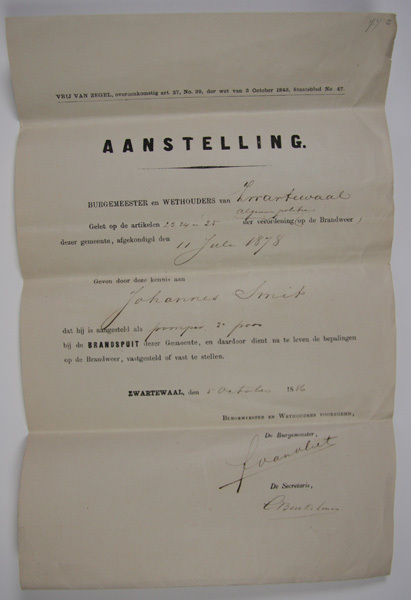 VRIJ VAN ZEGEL, overeenkomstig art 27, No. 39, der wet van 3 October 1843, Staatsblad No 47.
AANSTELLING.
BURGEMEESTER en WETHOUDERS van Zwartewaal
Gelet op de artikelen 22 24 en 25 der verordening (op de Brandweer)
dezer gemeente, afgekondigd den 11 Juli 1878
Geven door deze kennis aan
Johannes Smit
dat hij is aangesteld als pomper 2e
bij de BRANDSPUIT dezer Gemeente, en daardoor dient na te leven de bepalingen
op de Brandweer, vastgesteld of vast te stellen.
ZWARTEWAAL, den 5 October 18
BURGEMEESTER EN WETHOUDERS VOORNOEMD,
De Burgemeester,
De Secretaris,